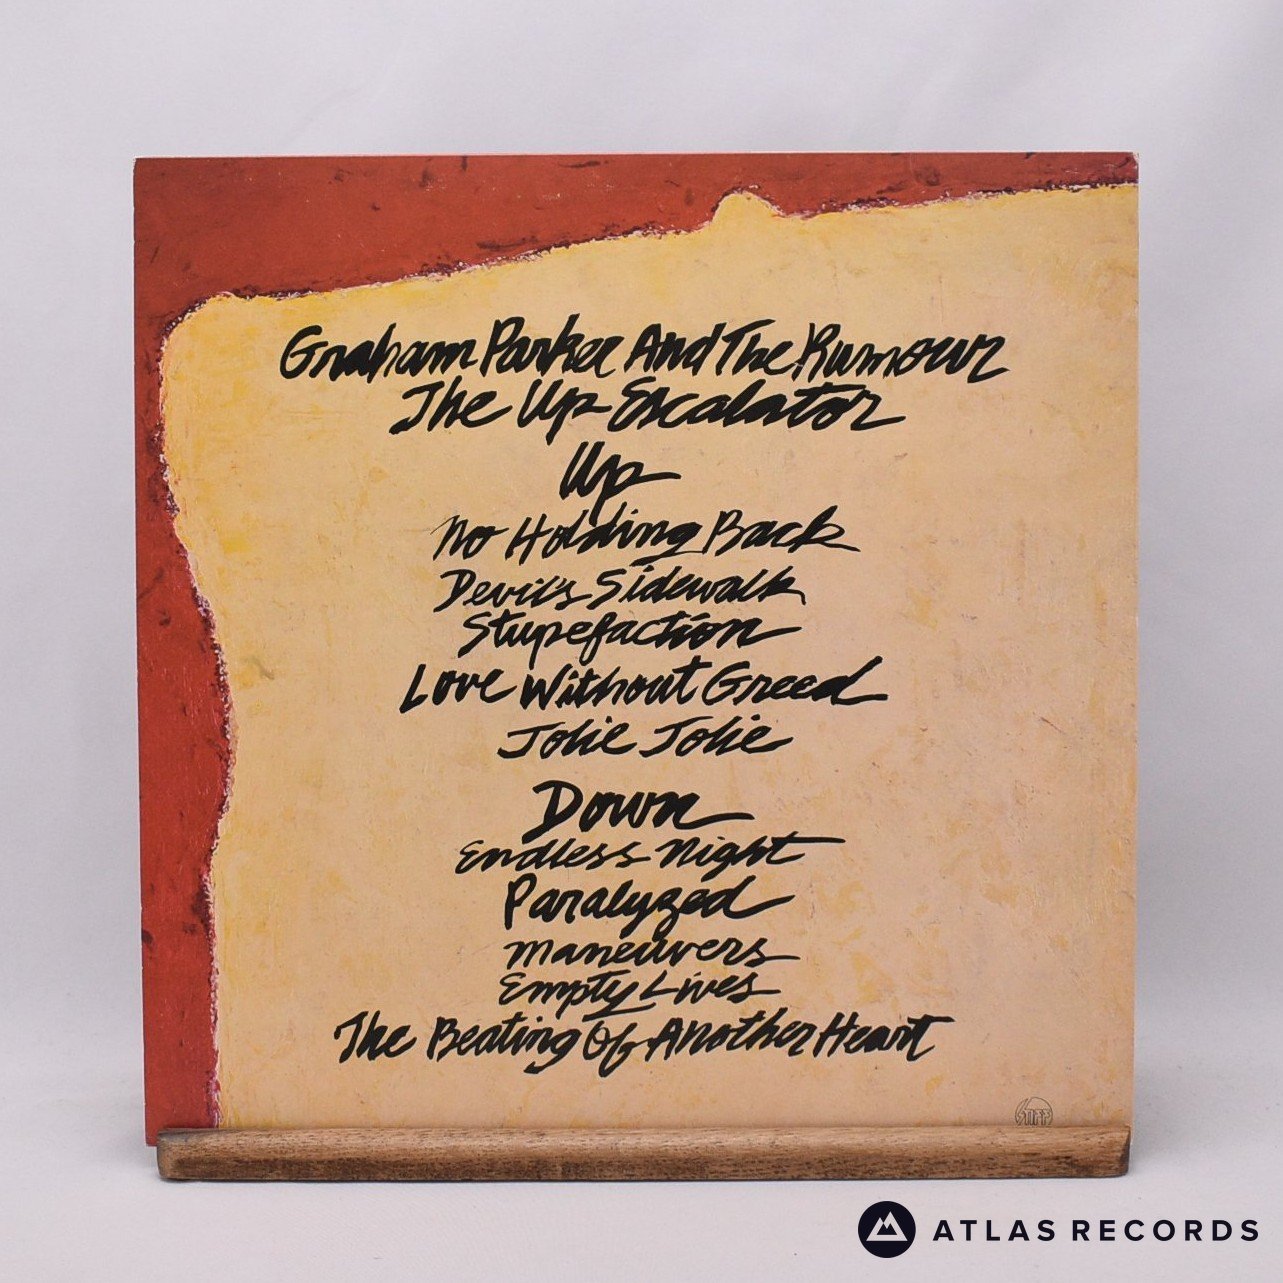 Graham Parker And The Rumour
The Up Escalator
Up
No Holding Back
Devil's Sidewalk
Stupefaction
Love Without Greed
Jolie Jolie
Down
Endless Night
Paralyzed
Maneuvers
Empty Lives
The Beating Of Another Heart
STIFF
ATLAS RECORDS